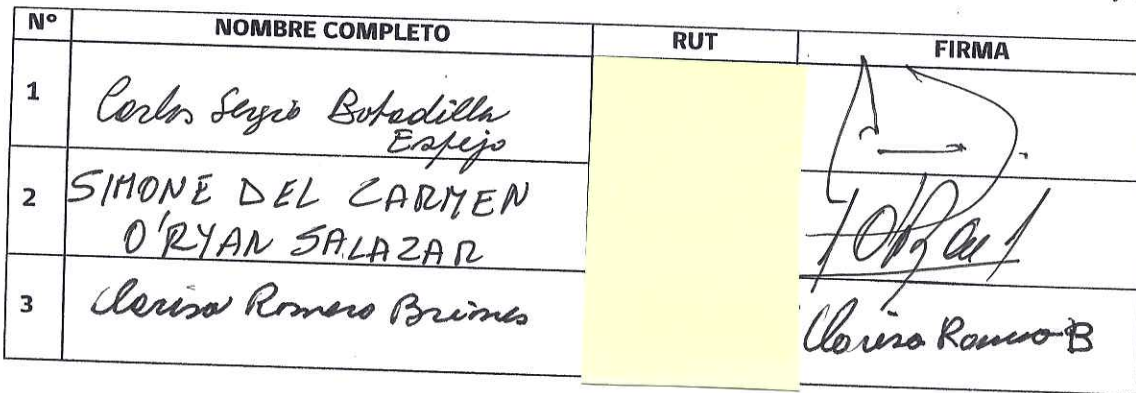 Nº NOMBRE COMPLETO RUT FIRMA
1 Carlos Sergio Bobadilla
Espejo
2 SIMONE DEL CARMEN
O'RYAN SALAZAR
3 Clarisa Romero Briones Clarisa Romero B